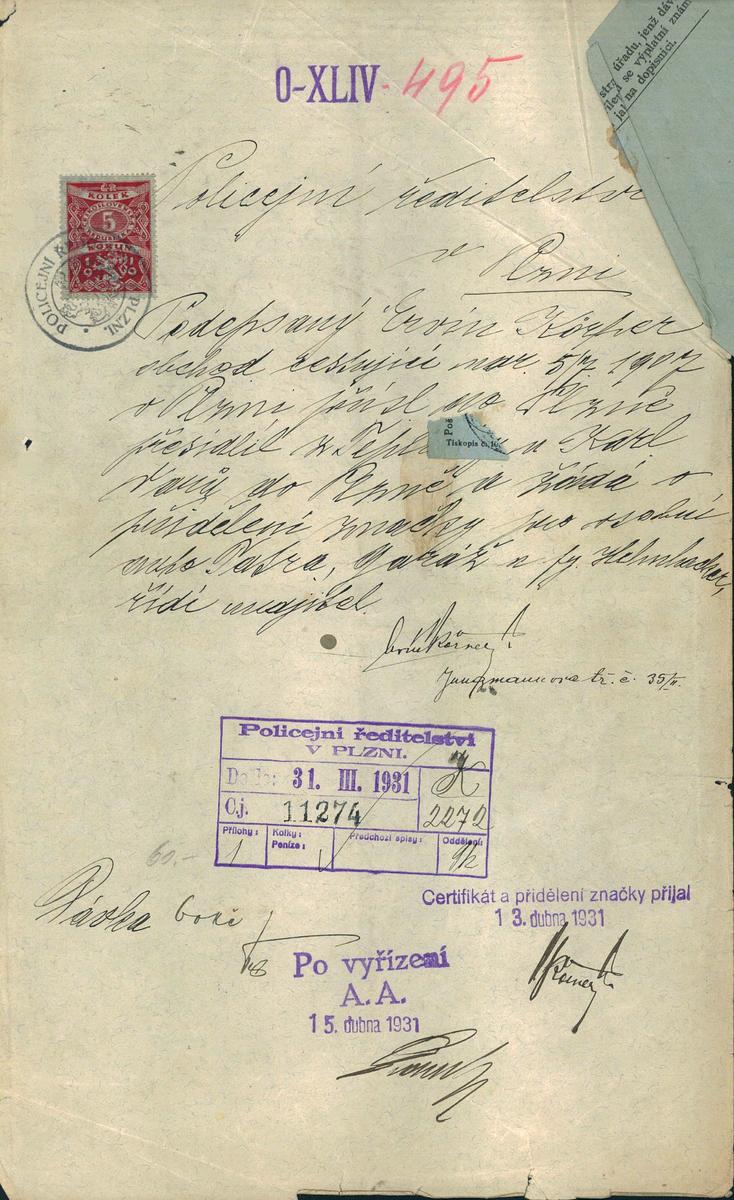 O-XLIV-495
stry úřadu, jenž
se výplatní znám
na dopisnici.
Policejní ředitelstv
v Plzni
KOLEK
5
KORUN
1919
POLICEJNÍ Ř PLZNI.
Podepsaný Ervín
obchod. cestující nar. 5/7 1907
v Plzni přísl. do Plzně
přesídlil z Tepl a Karl
Varů do Plzně a žádá o
přidělení značky pro osobní
auto Tatra, Garáž u fy. Helmhacker,
řídí majitel.
Poš
Tiskopis č.
Jungmannova tř. č. 35/II.
Policejní ředitelství
V PLZNI.
Došlo: 31. III. 1931
Č.j. 11274
2272
Přílohy: 1
Kolky:
Peníze:
Předchozí spisy:
Oddělení:
60.-
Dávka
Certifikát a přidělení značky přijal
13. dubna 1931
Po vyřízení
A.A.
15. dubna 1931